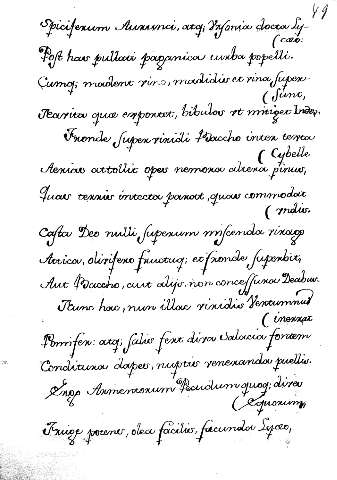 49
Spiciferum Aurunci, atq; Ursonia docta Ly-
(cæo:
Post has pullati paganica turba popelli.
Cumq; madent vino, madidis et vina super-
(sunt,
Narita quæ exportet, bibulos ut mitiget Indos.
Fronde super viridi Baccho inter texta
(Cybelle
Aerias attollit opes nemora altera pinus,
Quas terris intecta parat, quas commodat
(undis.
Casta Deo nulli superum miscenda virago
Attica, olivifero fructuq; et fronde superbit,
Aut Baccho, aut alijs non concessura Deabus.
Nunc has, nunc illac viridis Vertumnus
(inerrat
Pomifer: atq; salis fert diva Salacia fontem
Conditura dapes, nuptis veneranda puellis.
Ergo Armentorum Pecudum quoq; dives
(Equorum,
Fruge potens, olea facilis, facunda Lyæo,